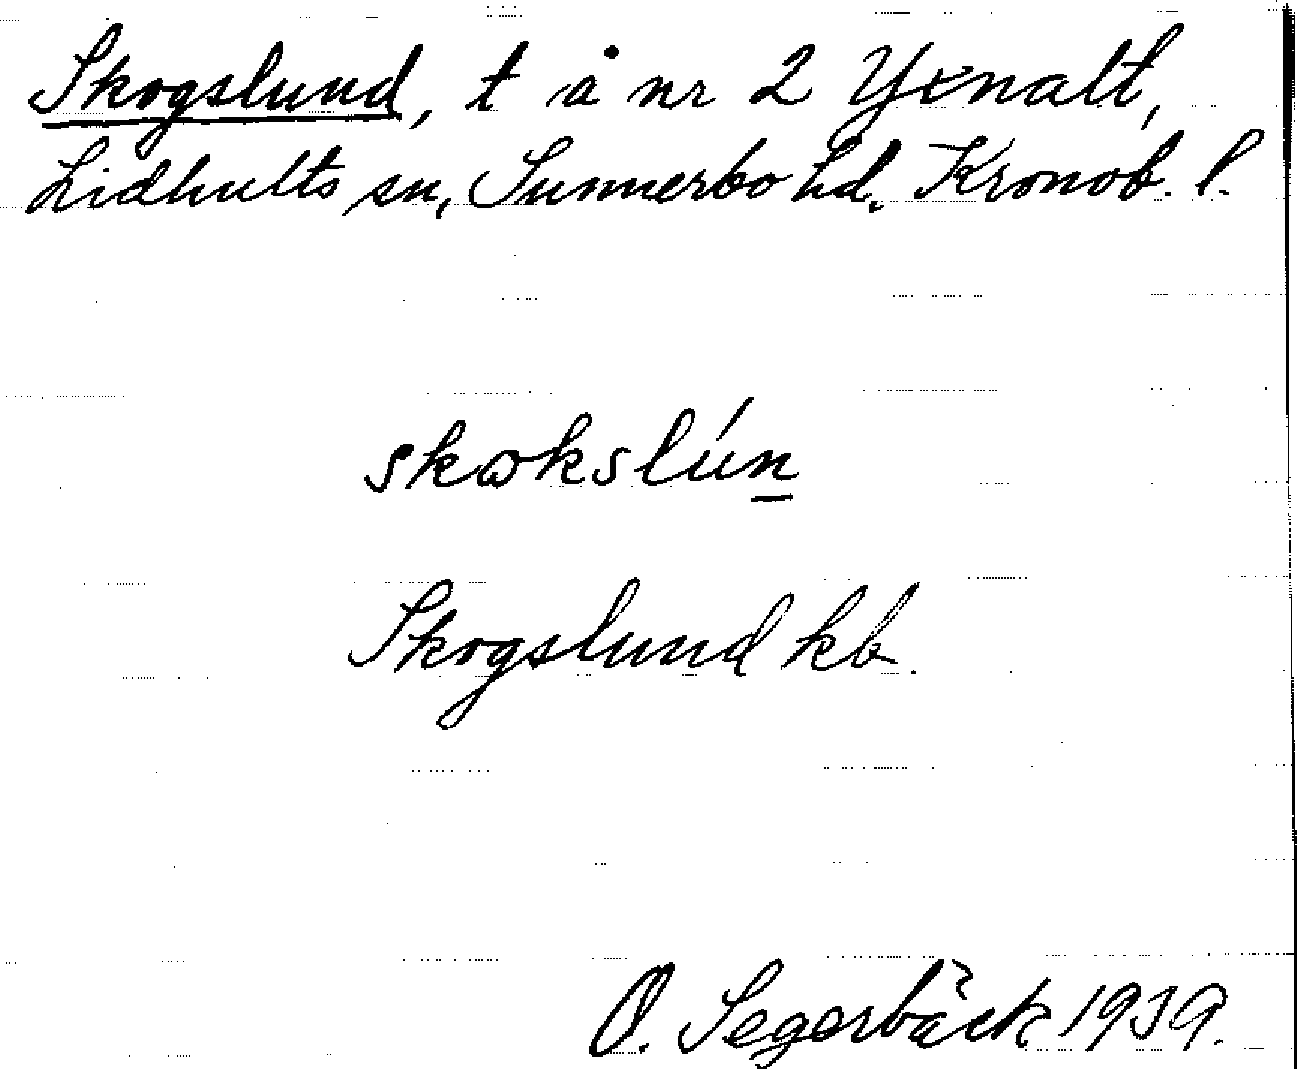 Skogslund, t å nr 2 Yxnalt,
Lidhults sn, Sunnerbo hd. Kronob. l.
skωkslún
Skogslund kb.
O. Segerbäck 1939.